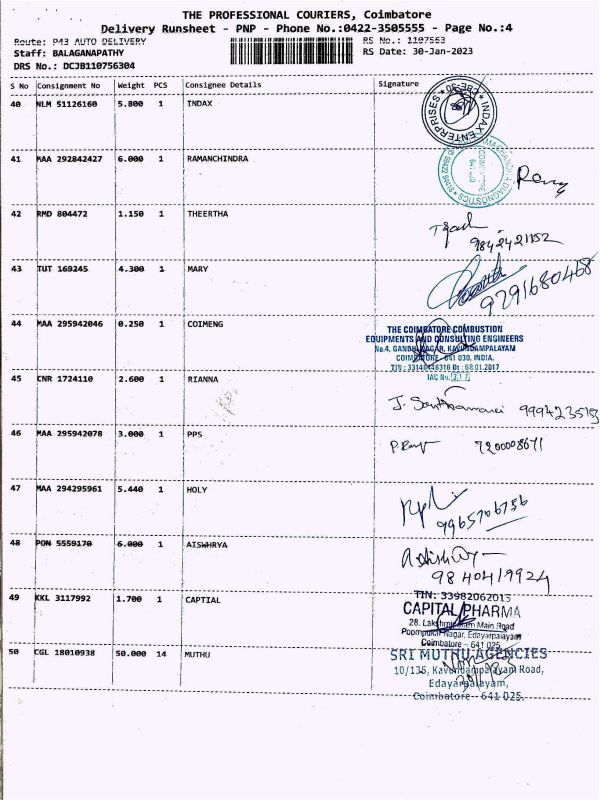 THE PROFESSIONAL COURIERS, Coimbatore
Delivery Runsheet - PNP - Phone No.:0422-3505555 - Page No.:4
Route: P43 AUTO DELIVERY RS No.: 1107563
Staff: BALAGANAPATHY RS Date: 30-Jan-2023
DRS No.: DCJB110756304
S No Consignment No Weight PCS Consignee Details Signature
40 NLM 51126160 5.800 1 INDAX
INDAX ENTERPRISES
41 MAA 292842427 6.000 1 RAMANCHINDRA
42 RMD 804472 1.150 1 THEERTHA
9842421152
43 TUT 169245 4.300 1 MARY
9791680468
44 MAA 295942046 0.250 1 COIMENG
THE COIMBATORE COMBUSTION
EQUIPMENTS AND CONSULTING ENGINEERS
No.4, GANDHI NAGAR, KAVUNDAMPALAYAM
COIMBATORE - 641 030. INDIA.
TIN : 33140446316 Dt : 08.01.2017
45 CNR 1724110 2.600 1 RIANNA
46 MAA 295942078 3.000 1 PPS
7200008671
47 MAA 294295961 5.440 1 HOLY
9965706756
48 PON 5559170 6.000 1 AISWHRYA
9840419924
49 KKL 3117992 1.700 1 CAPTIAL
TIN: 33982062015
CAPITAL PHARMA
Main Road
Nagar, Edayarpalayam
Coimbatore - 641 025
50 CGL 18010938 50.000 14 MUTHU
SRI MUTHU AGENCIES
10/135, Kavundampalayam Road,
Edayarpalayam,
Coimbatore - 641 025.